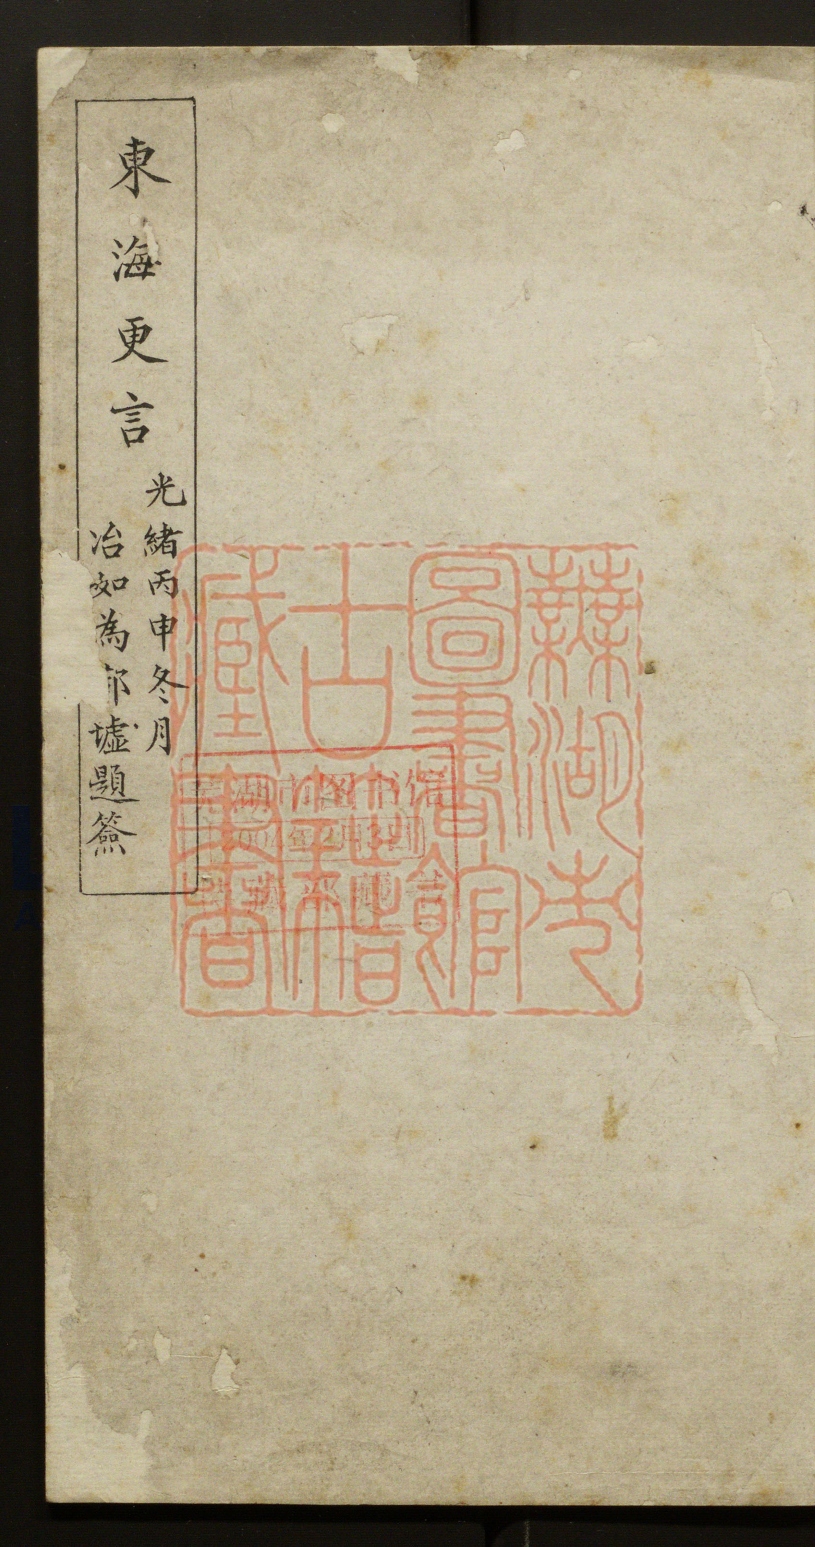 東海更言
光緒丙申冬月
冶如為 墟題簽
蕪湖市
圖書館
古籍
藏書